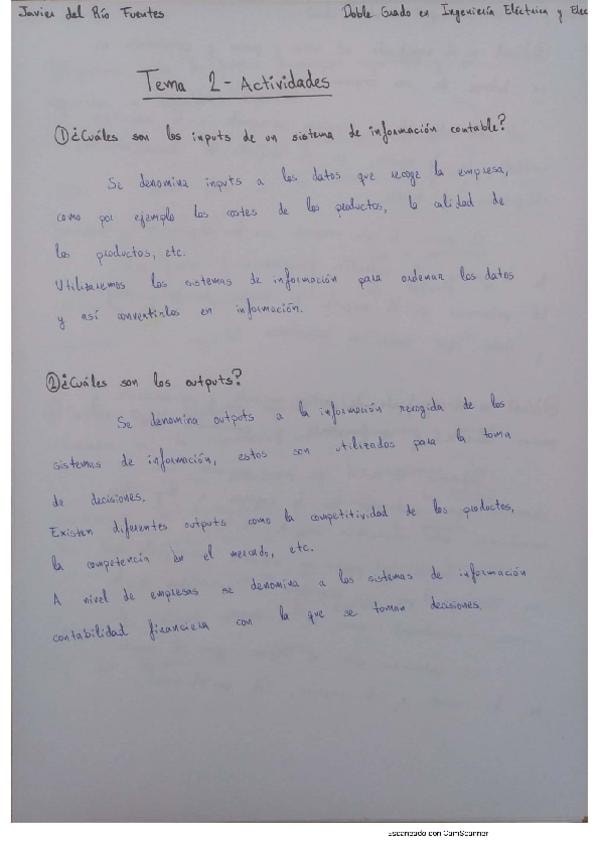 Javier del Río Fuentes
Doble Grado en Ingeniería Eléctrica y Elec
Tema 2 - Actividades
① ¿Cuáles son los inputs de un sistema de información contable?
Se denomina inputs a los datos que recoge la empresa,
como por ejemplo los costes de los productos, la calidad de
los productos, etc.
Utilizaremos los sistemas de información para ordenar los datos
y así convertirlos en información.
② ¿Cuáles son los outputs?
Se denomina outputs a la información recogida de los
sistemas de información, estos son utilizados para la toma
de decisiones.
Existen diferentes outputs como la competitividad de los productos,
la competencia en el mercado, etc.
A nivel de empresas se denomina a los sistemas de información
contabilidad financiera con la que se toman decisiones.
Escaneado con CamScanner